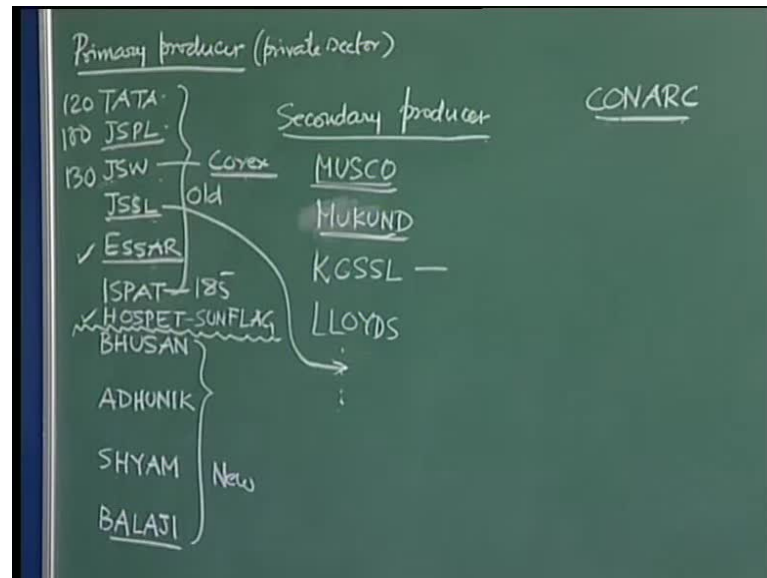 Primary producer (private sector)
120 TATA.
180 JSPL.
130 JSW — Corex
JSSL
Old
✓ ESSAR
ISPAT — 185
✓ HOSPET-SUNFLAG
BHUSAN
ADHUNIK
SHYAM
New
BALAJI
Secondary producer
MUSCO
MUKUND
KGSSL —
LLOYDS
CONARC